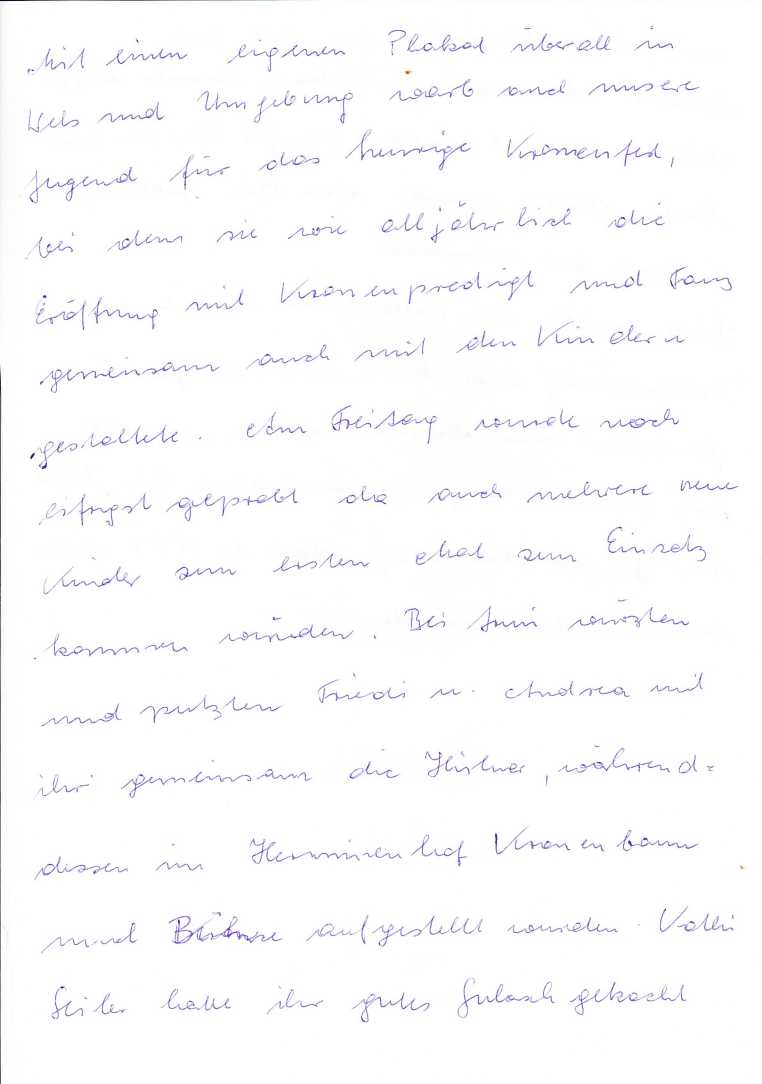 Mit einen eigenen Plakat überall in
Wels und Umgebung warb auch unsere
Jugend für das heurige Kronenfest,
bei dem sie wie alljährlich die
Eröffnung mit Kronenpredigt und Tanz
gemeinsam auch mit den Kindern
gestaltete. Am Freitag wurde noch
eifrigst geprobt da auch mehrere neue
Kinder zum ersten Mal zum Einsatz
kommen würden. Bei Susi würzten
und putzten Friedi u. Andrea mit
ihr gemeinsam die Hühner, während=
dessen im Herminenhof Kronenbaum
und Bühne aufgestellt wurden. Kathi
Seiler hatte ihr gutes Gulasch gekocht